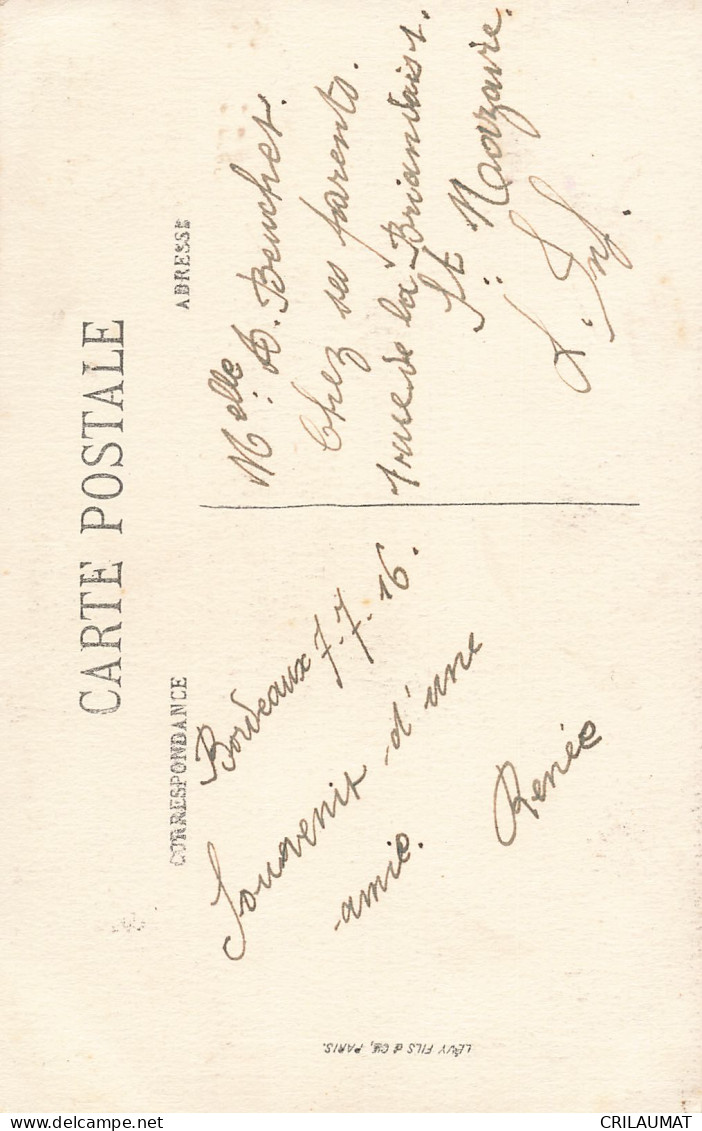 CARTE POSTALE
CORRESPONDANCE
Bordeaux 7-7-16.
Souvenir d'une
amie.
Renée
ADRESSE
Melle A. Beuchet.
Chez ses parents.
rue de la Briandais 1.
St Nazaire.
L. Inf.
LÉVY FILS & Cie, PARIS.
CRILAUMAT